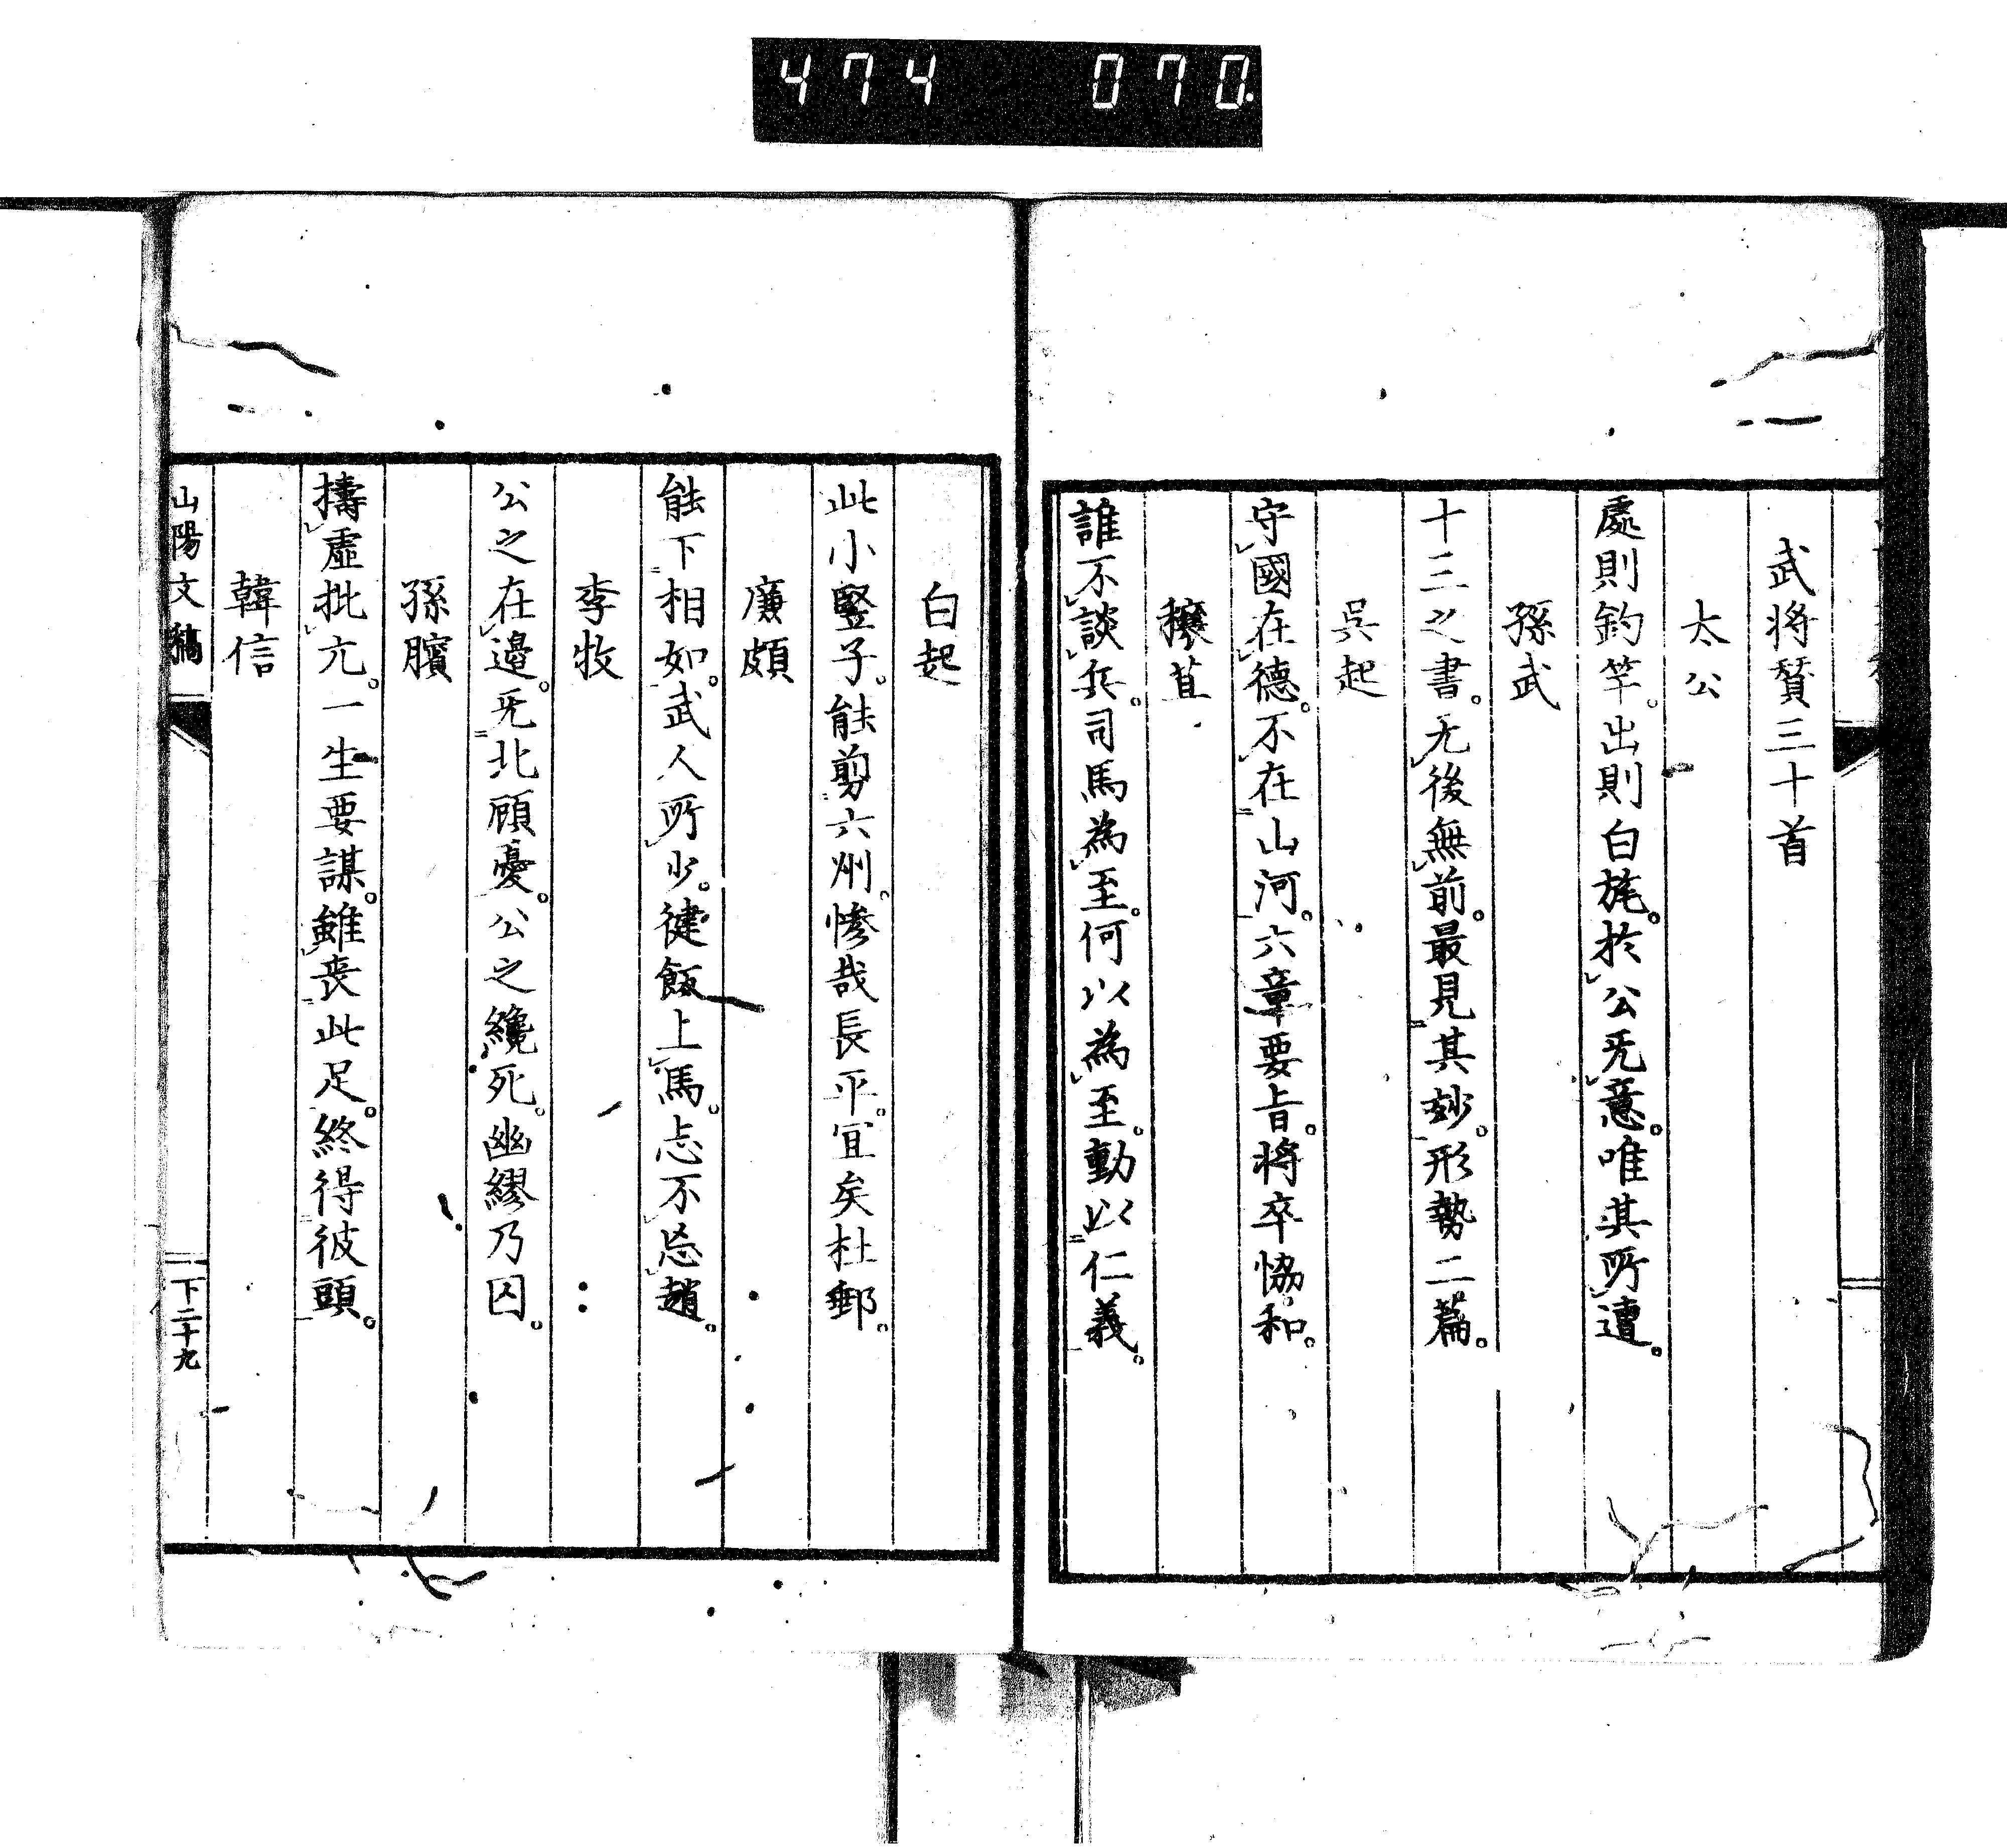 474 070.
武将賛三十首
太公
處則釣竿。出則白旄。於公旡意。唯其所遭。
孫武
十三之書。无後無前。最見其妙。形勢二篇。
吳起
守國在德。不在山河。六章要旨。將卒恊和。
穰苴
誰不談兵。司馬為至。何以為至。動以仁義。
白起
此小豎子。能剪六州。惨哉長平。宜矣杜郵。
廉頗
能下相如。武人所少。健飯上馬。忘不忘趙。
李牧
公之在邉。旡北顧憂。公之纔死。幽繆乃囚。
孫臏
擣虛批亢。一生要謀。雖喪此足。終得彼頭。
韓信
山陽文稿
下二十九